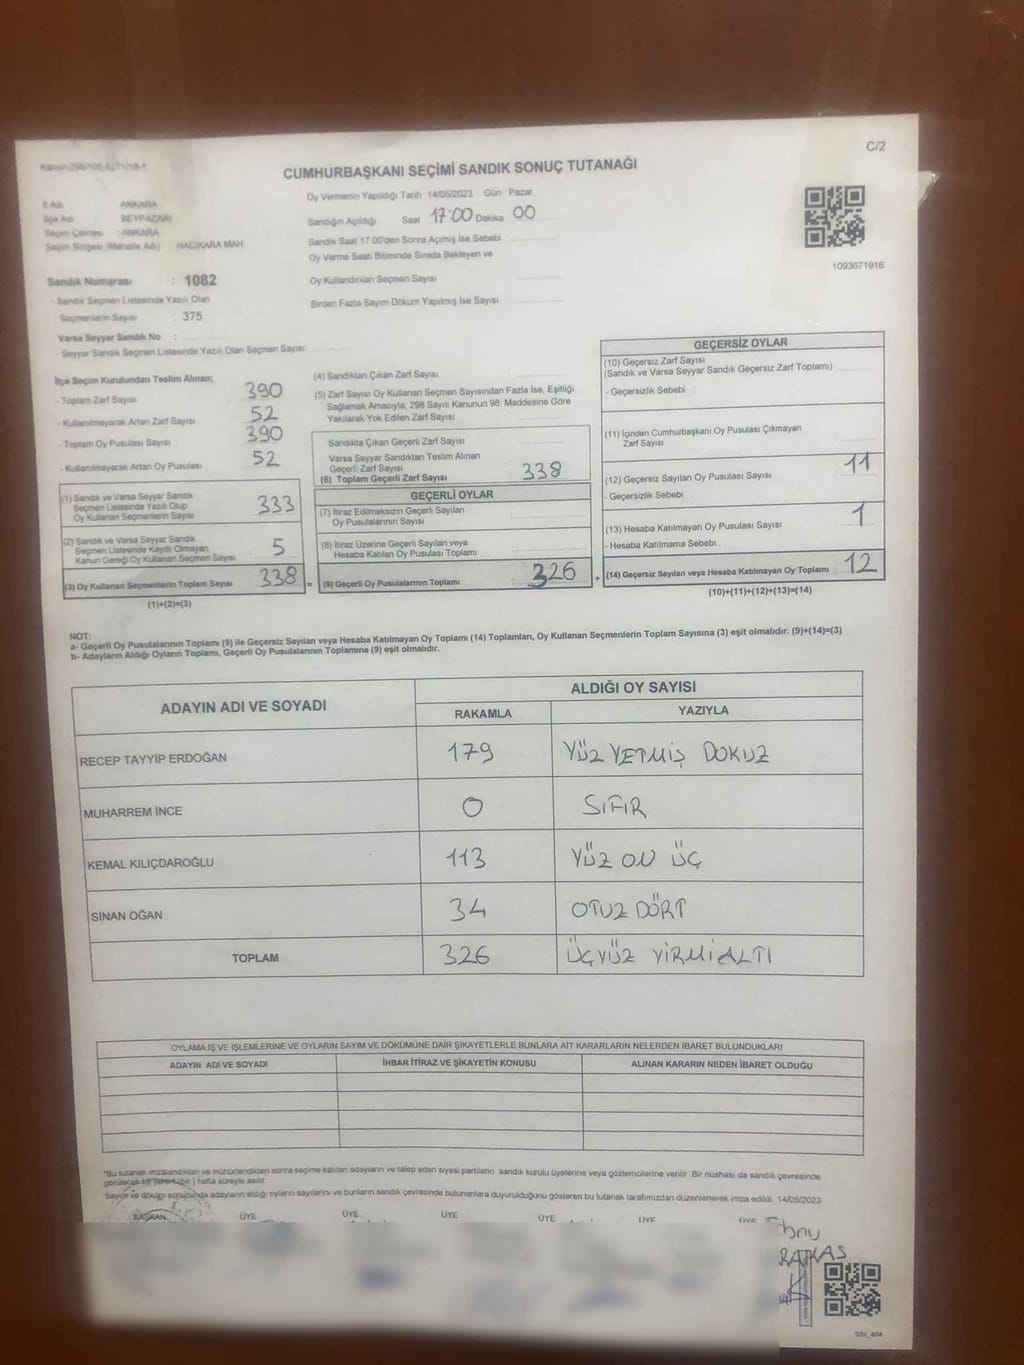 C/2
CUMHURBAŞKANI SEÇİMİ SANDIK SONUÇ TUTANAĞI
Oy Vermenin Yapıldığı Tarih 14/05/2023 Gün Pazar
İl Adı ANKARA
İlçe Adı BEYPAZARI
Seçim Çevresi : ANKARA
Seçim Bölgesi (Mahalle Adı) HACIKARA MAH
Sandığın Açıldığı Saat 17:00 Dakika 00
Sandık Saat 17:00'den Sonra Açımış İse Sebebi
Oy Verme Saati Bitiminde Sırada Bekleyen ve
Oy Kullandırılan Seçmen Sayısı
Birden Fazla Sayım Döküm Yapılmış İse Sayısı
1093671916
Sandık Numarası : 1082
- Sandık Seçmen Listesinde Yazılı Olan
Seçmenlerin Sayısı : 375
Varsa Seyyar Sandık No :
- Seyyar Sandık Seçmen Listesinde Yazılı Olan Seçmen Sayısı
İlçe Seçim Kurulundan Teslim Alınan;
- Toplam Zarf Sayısı 390
- Kullanılmayarak Artan Zarf Sayısı 52
- Toplam Oy Pusulası Sayısı 390
- Kullanılmayarak Artan Oy Pusulası 52
(1) Sandık ve Varsa Seyyar Sandık
Seçmen Listesinde Yazılı Olup
Oy Kullanan Seçmenlerin Sayısı 333
(2) Sandık ve Varsa Seyyar Sandık
Seçmen Listesinde Kayıtlı Olmayan
Kanun Gereği Oy Kullanan Seçmen Sayısı 5
(3) Oy Kullanan Seçmenlerin Toplam Sayısı 338
(1)+(2)=(3)
(4) Sandıktan Çıkan Zarf Sayısı
(5) Zarf Sayısı Oy Kullanan Seçmen Sayısından Fazla İse, Eşitliği
Sağlamak Amacıyla, 298 Sayılı Kanunun 98. Maddesine Göre
Yakılarak Yok Edilen Zarf Sayısı
Sandıkta Çıkan Geçerli Zarf Sayısı
Varsa Seyyar Sandıktan Teslim Alınan
Geçerli Zarf Sayısı
(6) Toplam Geçerli Zarf Sayısı 338
GEÇERLİ OYLAR
(7) İtiraz Edilmeksizin Geçerli Sayılan
Oy Pusulalarının Sayısı
(8) İtiraz Üzerine Geçerli Sayılan veya
Hesaba Katılan Oy Pusulası Toplamı
= (9) Geçerli Oy Pusulalarının Toplamı 326 +
GEÇERSİZ OYLAR
(10) Geçersiz Zarf Sayısı
(Sandık ve Varsa Seyyar Sandık Geçersiz Zarf Toplamı)
- Geçersizlik Sebebi :
(11) İçinden Cumhurbaşkanı Oy Pusulası Çıkmayan
Zarf Sayısı
(12) Geçersiz Sayılan Oy Pusulası Sayısı 11
- Geçersizlik Sebebi
(13) Hesaba Katılmayan Oy Pusulası Sayısı 1
- Hesaba Katılmama Sebebi :
(14) Geçersiz Sayılan veya Hesaba Katılmayan Oy Toplamı 12
(10)+(11)+(12)+(13)=(14)
NOT:
a- Geçerli Oy Pusulalarının Toplamı (9) ile Geçersiz Sayılan veya Hesaba Katılmayan Oy Toplamı (14) Toplamları, Oy Kullanan Seçmenlerin Toplam Sayısına (3) eşit olmalıdır. (9)+(14)=(3)
b- Adayların Aldığı Oyların Toplamı, Geçerli Oy Pusulalarının Toplamına (9) eşit olmalıdır.
ADAYIN ADI VE SOYADI ALDIĞI OY SAYISI
RAKAMLA YAZIYLA
RECEP TAYYİP ERDOĞAN 179 YÜZ YETMİŞ DOKUZ
MUHARREM İNCE 0 SIFIR
KEMAL KILIÇDAROĞLU 113 YÜZ ON ÜÇ
SİNAN OĞAN 34 OTUZ DÖRT
TOPLAM 326 ÜÇYÜZ YİRMİALTI
OYLAMA İŞ VE İŞLEMLERİNE VE OYLARIN SAYIM VE DÖKÜMÜNE DAİR ŞİKAYETLERLE BUNLARA AİT KARARLARIN NELERDEN İBARET BULUNDUKLARI
ADAYIN ADI VE SOYADI İHBAR İTİRAZ VE ŞİKAYETİN KONUSU ALINAN KARARIN NEDEN İBARET OLDUĞU
*Bu tutanak imzalandıktan ve mühürlendikten sonra seçime katılan adayların ve talep eden siyasi partilerin sandık kurulu üyelerine veya gözlemcilerine verilir. Bir nüshası da sandık çevresinde
görülecek bir yere ( bir ) hafta süreyle asılır.
Sayım ve döküm sonucunda adayların aldığı oyların sayılarını ve bunların sandık çevresinde bulunanlara duyurulduğunu gösteren bu tutanak tarafımızdan düzenlenerek imza edildi. 14/05/2023
BAŞKAN ÜYE ÜYE ÜYE ÜYE ÜYE ÜYE
SSI_404